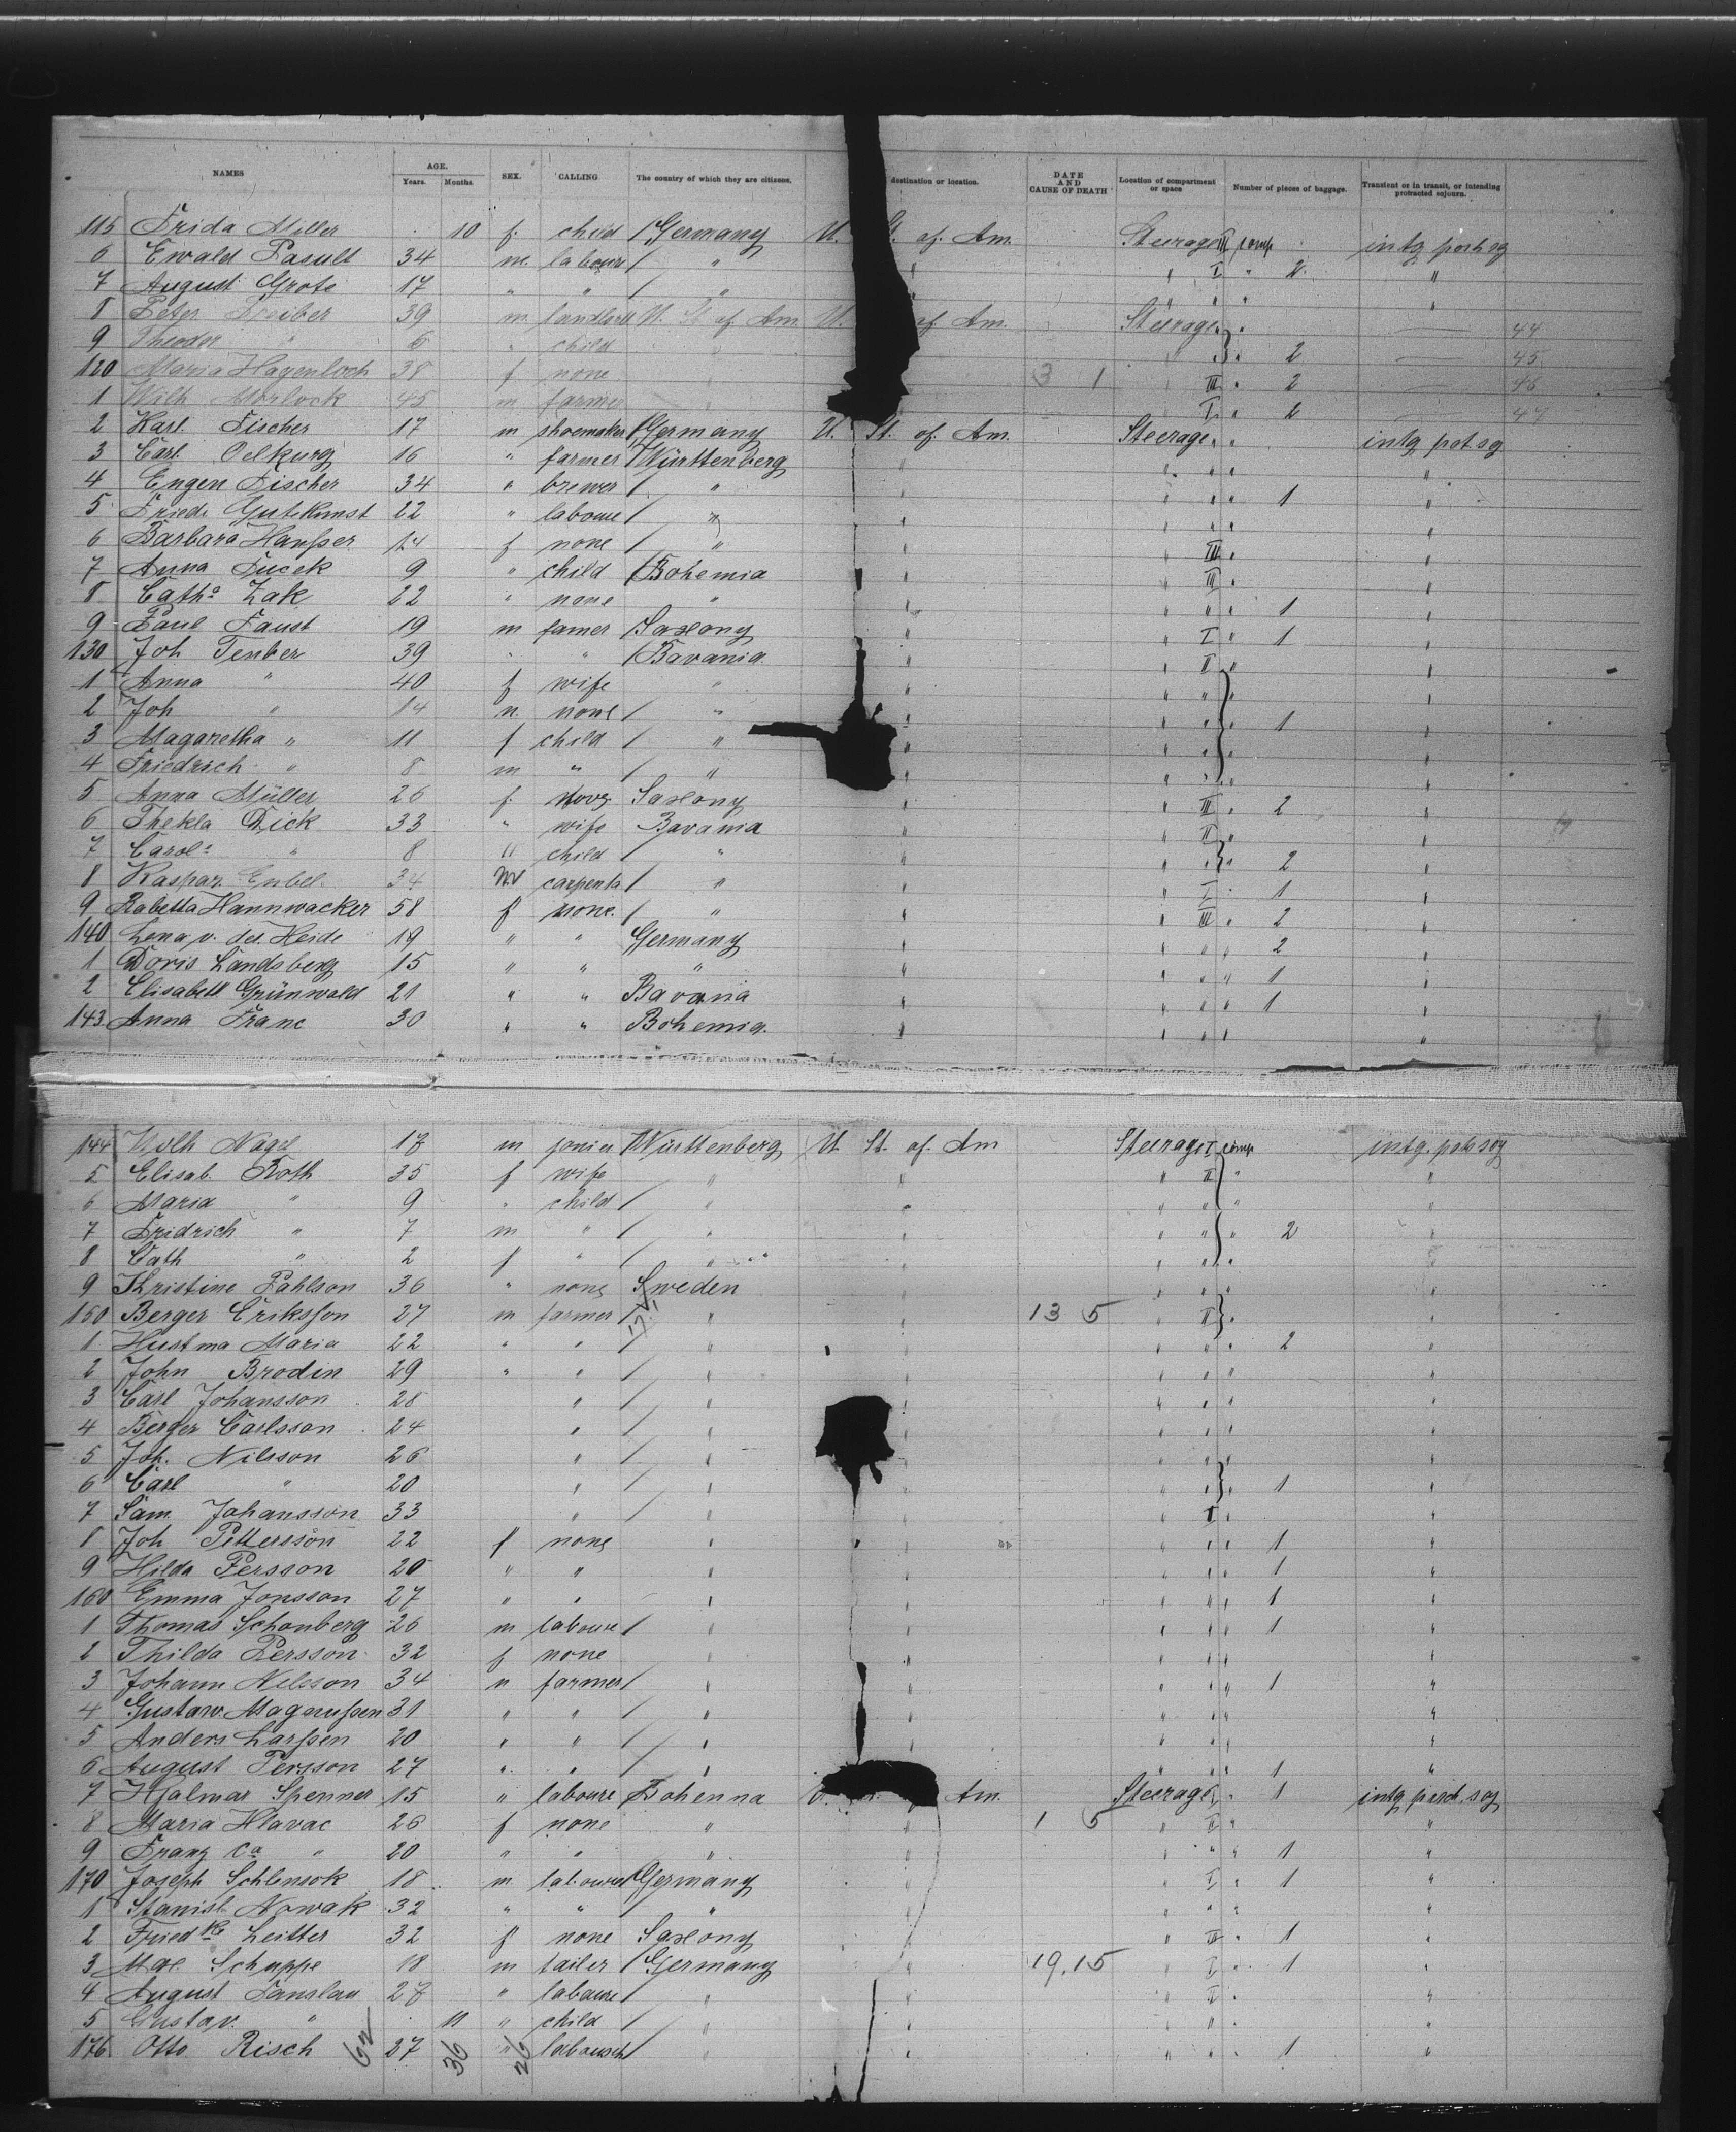 NAMES AGE. Years. Months. SEX. CALLING The country of which they are citizens. destination or location. DATE AND CAUSE OF DEATH Location of compartment or space Number of pieces of baggage. Transient or in transit, or intending protracted sojourn.
115 Frida Miller 10 f. child / Germany U. St. of. Am. Steerage III comp intg port sg
6 Ewald Pasult 34 m. labour / " " " I " 2 "
7 August Grote 17 " " / " " " " "
8 Peter 39 m. landlord U. St of. Am. U. of. Am. Steerage " — 44
9 Theodor " 6 " child " " " 2 — 45
120 Maria Hagenloch 38 f none " 3 1 " III " 2 — 46
1 Wilh Morlock 45 m farmer " " I " 2 — 47
2 Karl Fischer 17 m shoemaker / Germany U. St. of. Am. Steerage " " intg pot sg
3 Carl Oelkurg 16 " farmer / Württenberg " " " " "
4 Eugen Fischer 34 " brewer / " " " " " 1 "
5 Friedr Gutekunst 22 " laboure / " " " " " "
6 Barbara Hausser 14 f none / " " " III " "
7 Anna Fucek 9 " child / Bohemia " " III " "
8 Catha Zak 22 " none " " " " " 1 "
9 Paul Faust 19 m famer / Saxony " " I " 1 "
130 Joh Tenber 39 " " / Bavania " " II " "
1 Anna " 40 f wife " " " " " "
2 Joh " 14 m. none / " " " " " 1 "
3 Magaretha " 11 f child / " " " " " "
4 Friedrich " 8 m " / " " " " " "
5 Anna Müller 26 f. Saxony " " III " 2 "
6 Thekla Dick 33 " wife Bavania " " II " "
7 Carol: " 8 " child / " " " " " 2 "
8 Kaspar Enbel 34 m carpenta / " " " I " 1 "
9 Babetta Hannwacker 58 f none. / " " " III " 2 "
140 Lena v. der Heide 19 " " Germany " " " " 2 "
1 Doris Landsberg 15 " " " " " " " 1 "
2 Elisabett Grünwald 21 " " Bavaria " " " " 1 "
143 Anna Franc 30 " " Bohemia. " " " " "
144 Wilh Nagel 17 m jonier / Württenberg U. St. of. Am Steerage I comp intg. port sog
5 Elisab. Roth 35 f wife " " " II " "
6 Maria " 9 " child / " " " " " "
7 Fridrich " 7 m " / " " " " " 2 "
8 Cath " 2 f " / " " " " " "
9 Kristine Pahlson 36 " none Sweden " " " " "
150 Berger Eriksson 27 m farmer / " " 13 5 " II " "
1 Hustma Maria 22 " " / " " " " " 2 "
2 John Brodin 29 " " / " " " " " "
3 Carl Johansson 28 " / " " " " " "
4 Berger Carlsson 24 " / " " " " " "
5 Joh. Nilsson 26 " / " " " " " "
6 Carl " 20 " / " " " " " 1 "
7 Sam. Johansson 33 " / " " " I "
8 Joh Pettersson 22 f none " " " " " 1 "
9 Hilda Persson 20 " " " " " " " 1 "
160 Emma Jonsson 27 " " " " " " " 1 "
1 Thomas Schonberg 26 m laboure / " " " " " 1 "
2 Thilda Persson 32 f none " " " " " "
3 Johann Nelsson 34 m farmer / " " " " " 1 "
4 Gustaw Magnussen 31 " " / " " " " " "
5 Anders Larssen 20 " " / " " " " " "
6 August Persson 27 " " / " " " " " 1 "
7 Hjalmar Spenner 15 " laboure / Bohenna U. Am. Steerage " 1 intg port. sog
8 Maria Hlavac 26 f none " " 1 5 " II " "
9 Franz Ca " 20 " " " " " " " 1 "
170 Joseph Schlensok 18 m laboure / Germany " " I " 1 "
1 Stanisl. Nowak 32 " " " " " " " "
2 Friedke Leitter 32 f none Saxony " " III " 1 "
3 Max Schuppe 18 m tailer / Germany " 19.15 " I " 1 "
4 August Fanslau 27 " laboure / " " " II " "
5 Gustav. " 11 " child / " " " " "
176 Otto Risch 27 " / " " " " " 1 "
62 36 26